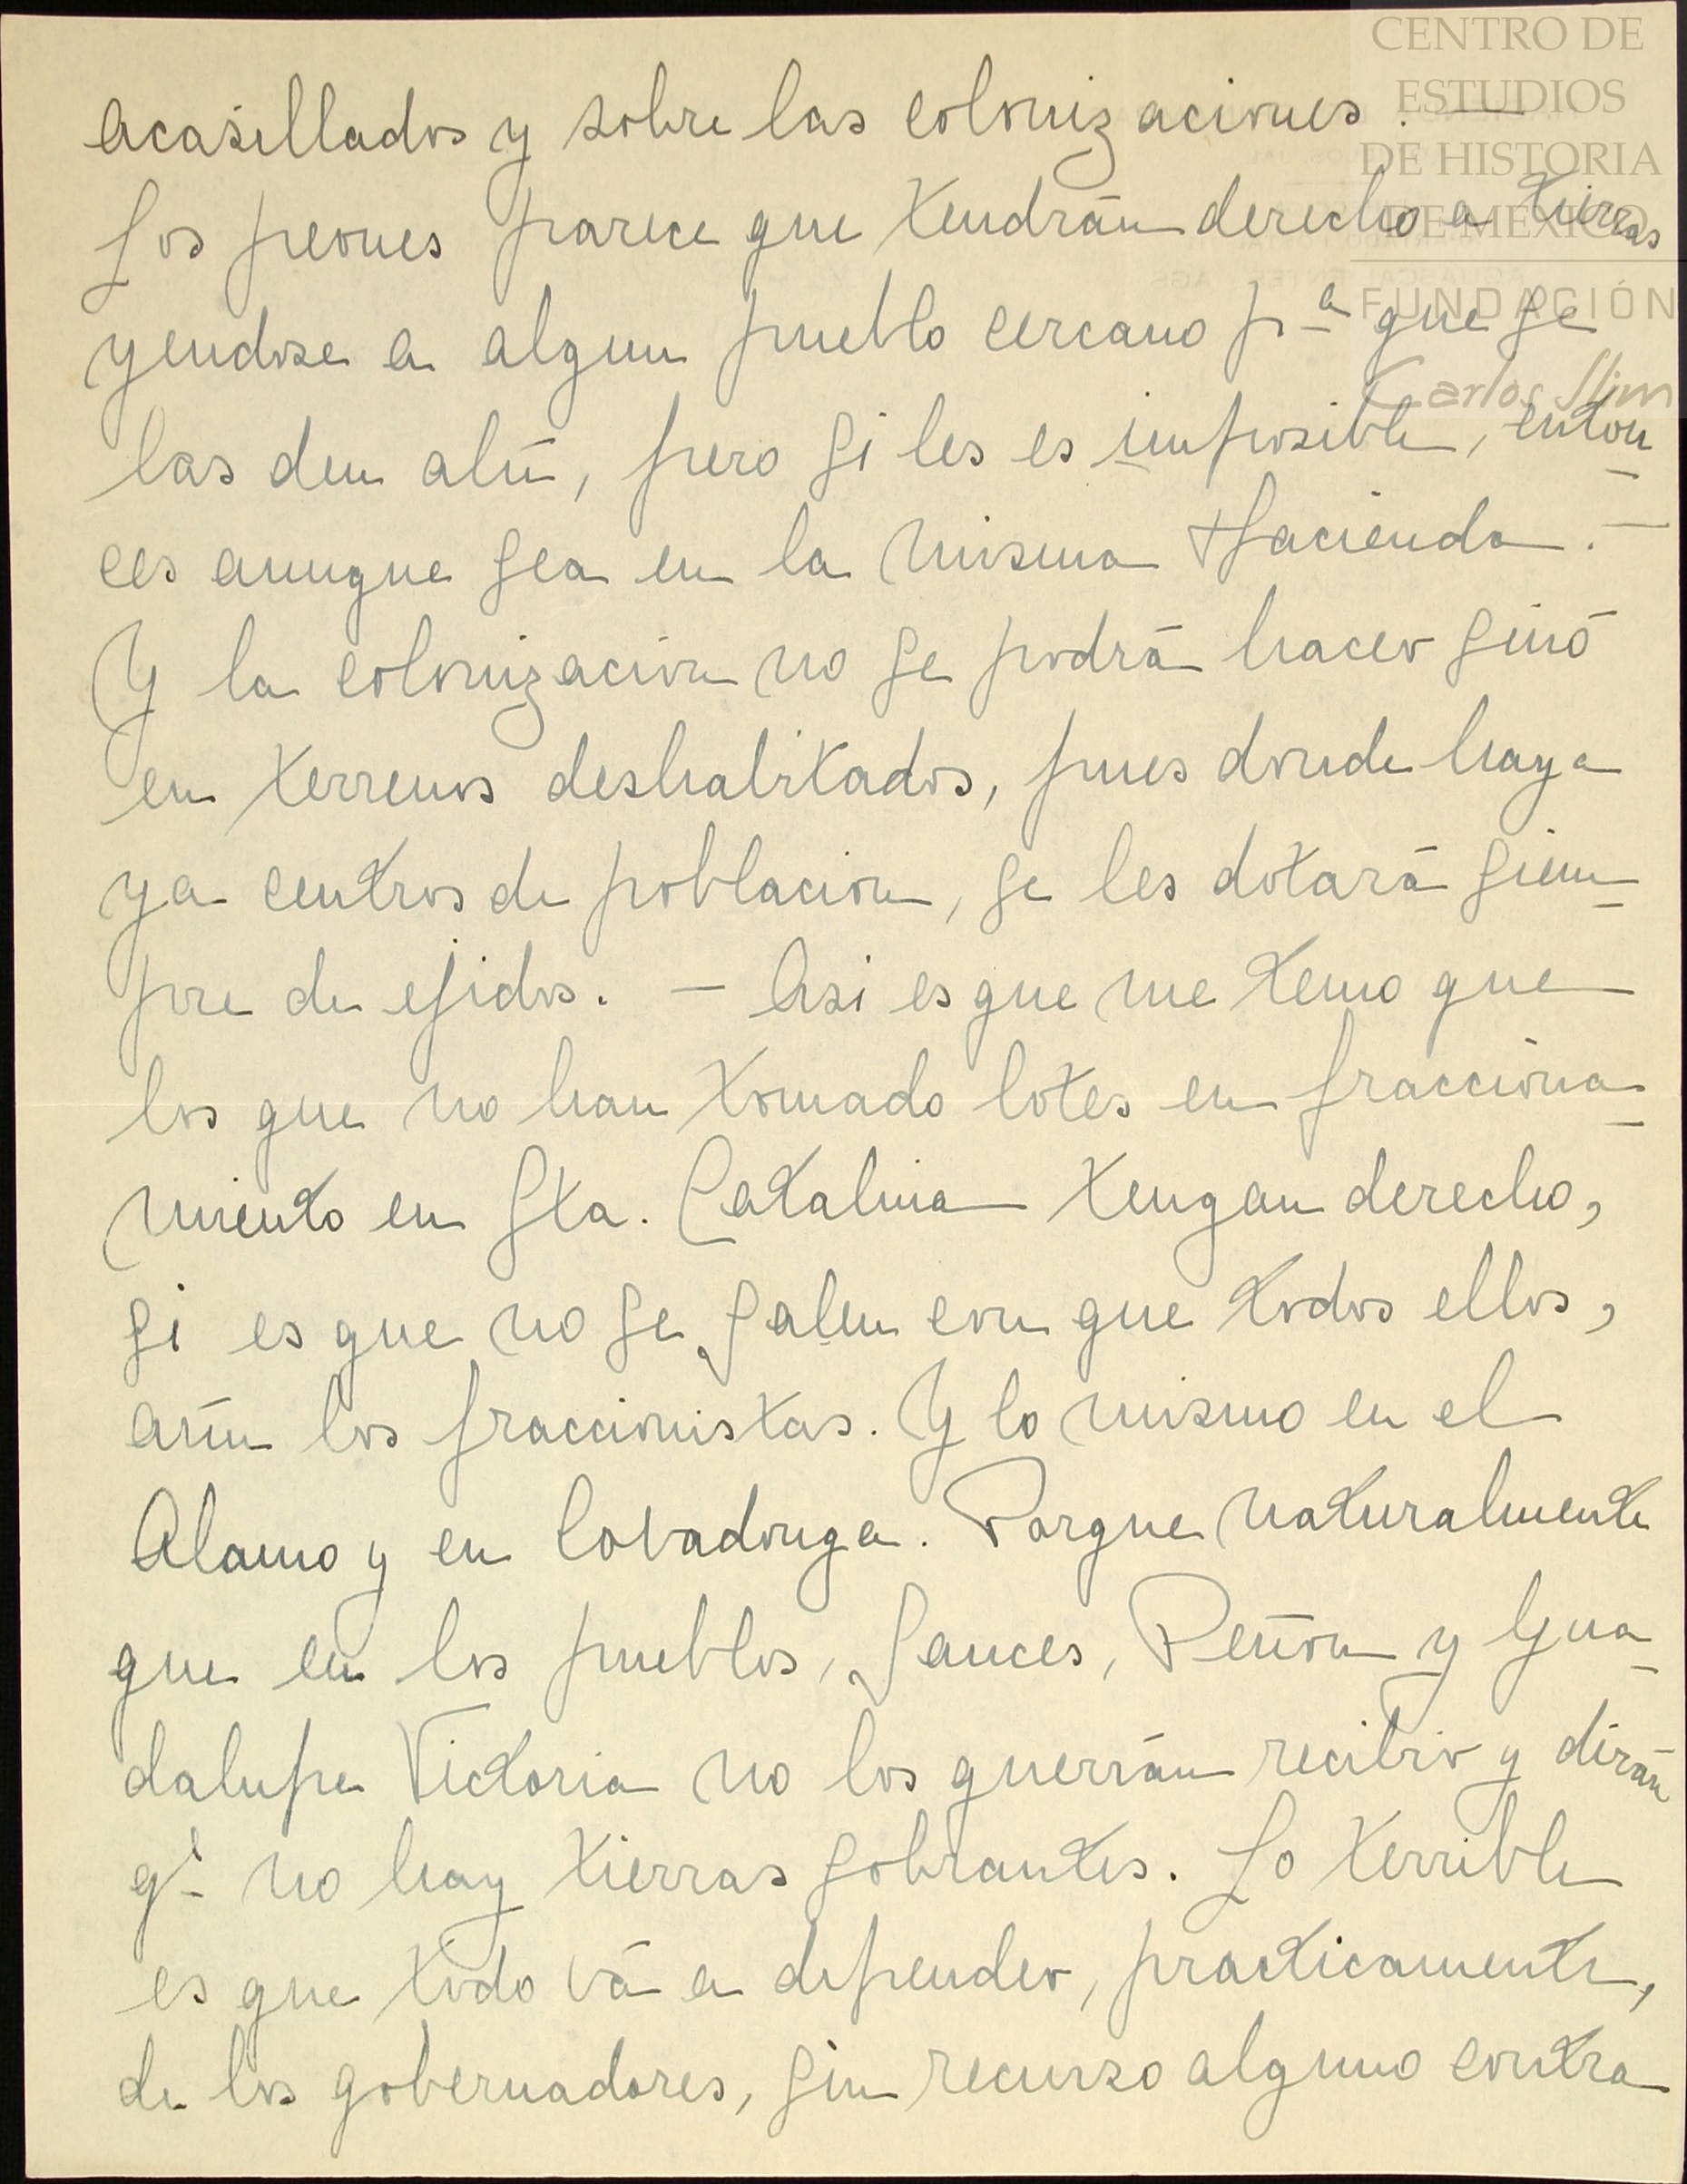 CENTRO DE
ESTUDIOS
DE HISTORIA
DE MÉXICO
FUNDACIÓN
Carlos Slim
acasillados y sobre las colonizaciones. —
Los peones parece que tendrán derecho a tierras
yendose a algun pueblo cercano pª que se
las den ahí, pero si les es imposible, enton-
ces aunque sea en la misma Hacienda. —
Y la colonización no se podrá hacer sinó
en terrenos deshabitados, pues donde haya
ya centros de poblacion, se les dotará siem-
pre de ejidos. — Asi es que me temo que
los que no han tomado lotes en fracciona-
miento en Sta. Catalina tengan derecho,
si es que no se salen con que todos ellos,
aún los fraccionistas. Y lo mismo en el
Alamo y en Covadonga. Porque naturalmente
que en los pueblos, Sauces, Peñón y Gua-
dalupe Victoria no los querrán recibir y dirán
qᵉ no hay tierras sobrantes. Lo terrible
es que todo vá a depender, practicamente,
de los gobernadores, sin recurso alguno contra